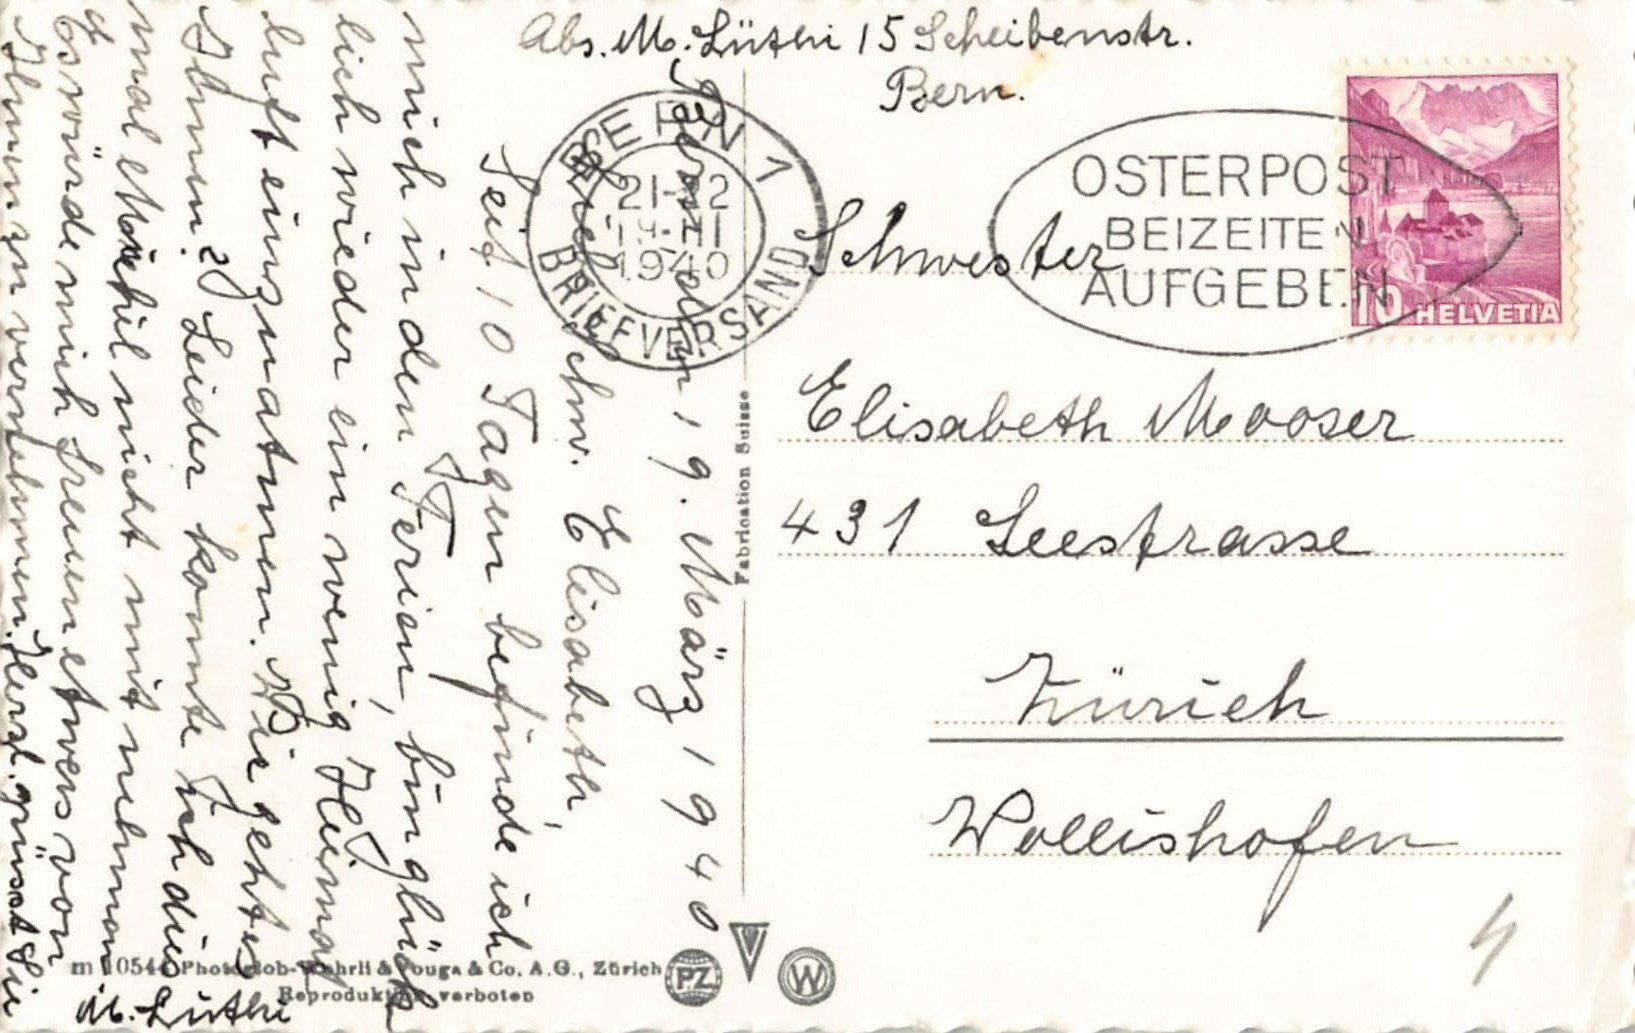 Abs. M. Lüthi 15 Scheibenstr.
Bern.
BERN 1
21-22
19.III
1940
BRIEFVERSAND
OSTERPOST
BEIZEITEN
AUFGEBEN
10 HELVETIA
Schwester
Elisabeth Mooser
431 Seestrasse
Zürich
Wollishofen
Fabrication Suisse
Bern den 19. März 1940
Schw. Elisabeth,
Seit 10 Tagen befinde ich
mich in den Ferien, bin glück
lich wieder ein wenig Heimat
luft einzuatmen. Wie geht es
Ihnen? Leider konnte ich dies
mal nicht mit nehmen
Es würde mich freuen etwas von
Ihnen zu vernehmen. Herzl. grüsst Sie
M. Lüthi
m 10544 Photoglob-Wehrli & Vouga & Co. A.G., Zürich
Reproduktion verboten
PZ
W
4